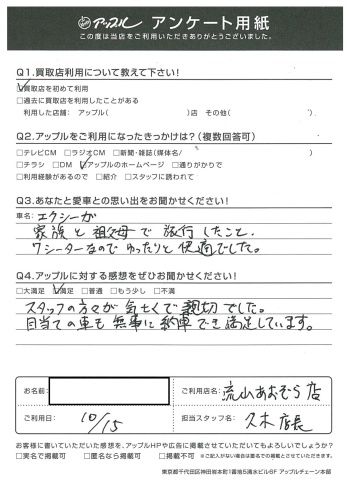 アップル アンケート用紙
この度は当店をご利用いただきありがとうございました。
Q1.買取店利用について教えて下さい!
☑買取店を初めて利用
□過去に買取店を利用したことがある
利用した店舗： アップル( )店 その他( ).
Q2.アップルをご利用になったきっかけは?(複数回答可)
□テレビCM □ラジオCM □新聞・雑誌(媒体名/ )
□チラシ □DM ☑アップルのホームページ □通りがかりで
□利用経験があるので □紹介 □スタッフに誘われて
Q3.あなたと愛車との思い出をお聞かせください!
車名：エクシーガ
家族と祖父母で旅行したこと。
7シーターなのでゆったりと快適でした。
Q4.アップルに対する感想をぜひお聞かせください!
□大満足 ☑満足 □普通 □もう少し □不満
スタッフの方々が気さくで親切でした。
目当ての車も無事に納車でき満足しています。
お名前:
ご利用店名: 流山おおぞら店
ご利用日: 10/15
担当スタッフ名: 久木店長
お客様に書いていただいた感想を、アップルHPや広告に掲載させていただいてもよろしいでしょうか?
□実名で掲載可 □匿名なら掲載可 □掲載不可 ※ご記入がない場合は匿名での掲載とさせていただきます。
東京都千代田区神田岩本町1番地5清水ビル6F アップルチェーン本部